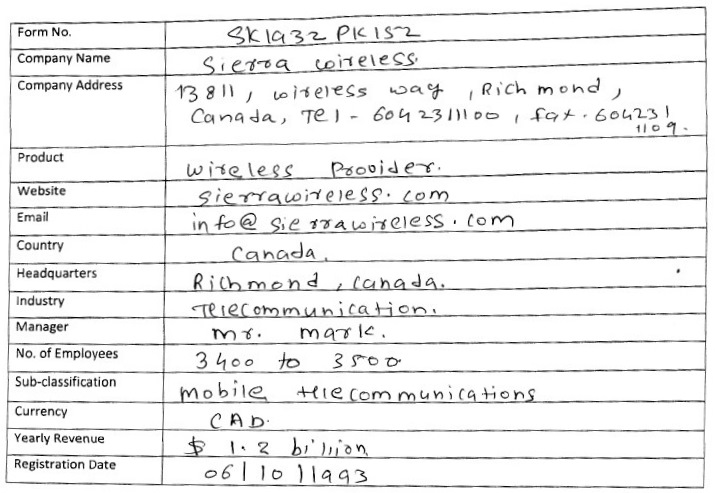 Form No. SK1932 PK152
Company Name Sierra wireless.
Company Address 13811, wireless way, Richmond,
Canada, Tel - 6042311100, fax. 604231
1109.
Product wireless Provider.
Website sierrawireless.com
Email info@sierrawireless.com
Country Canada.
Headquarters Richmond, Canada.
Industry Telecommunication.
Manager mr. mark.
No. of Employees 3400 to 3500
Sub-classification mobile telecommunications
Currency CAD.
Yearly Revenue $ 1.2 billion
Registration Date 06/10/1993